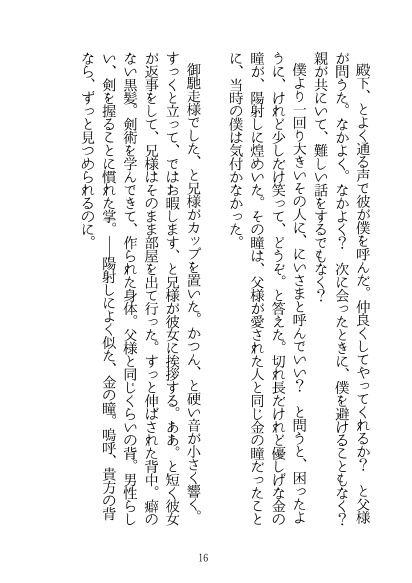 殿下、とよく通る声で彼が僕を呼んだ。仲良くしてやってくれるか？　と父様
が問うた。なかよく。なかよく？　次に会ったときに、僕を避けることもなく？
親が共にいて、難しい話をするでもなく？
僕より一回り大きいその人に、にいさまと呼んでいい？　と問うと、困ったよ
うに、けれど少しだけ笑って、どうぞ。と答えた。切れ長だけれど優しげな金の
瞳が、陽射しに煌めいた。その瞳は、父様が愛された人と同じ金の瞳だったこと
に、当時の僕は気付かなかった。
御馳走様でした、と兄様がカップを置いた。かつん、と硬い音が小さく響く。
すっくと立って、ではお暇します、と兄様が彼女に挨拶する。ああ。と短く彼女
が返事をして、兄様はそのまま部屋を出て行った。すっと伸ばされた背中。癖の
ない黒髪。剣術を学んできて、作られた身体。父様と同じくらいの背。男性らし
い、剣を握ることに慣れた掌。――陽射しによく似た、金の瞳。嗚呼、貴方の背
なら、ずっと見つめられるのに。
16